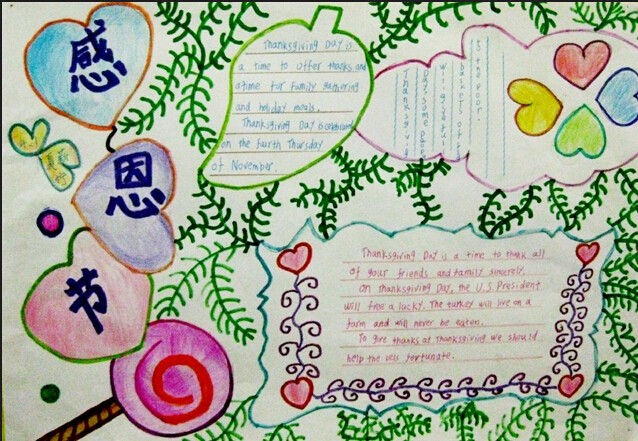 感
恩
节
Thanksgiving Day is
a time to offer thanks and
a time for family gathering
and holiday meals.
Thanksgiving Day is
on the fourth Thursday
of November.
to the poor.
Thanksgiving Day is a time to thank all
of your friends and family sincerely.
On Thanksgiving Day, the U.S. President
will free a lucky. The turkey will live on a
farm and will never be eaten.
To give thanks at Thanksgiving we should
help the less fortunate.